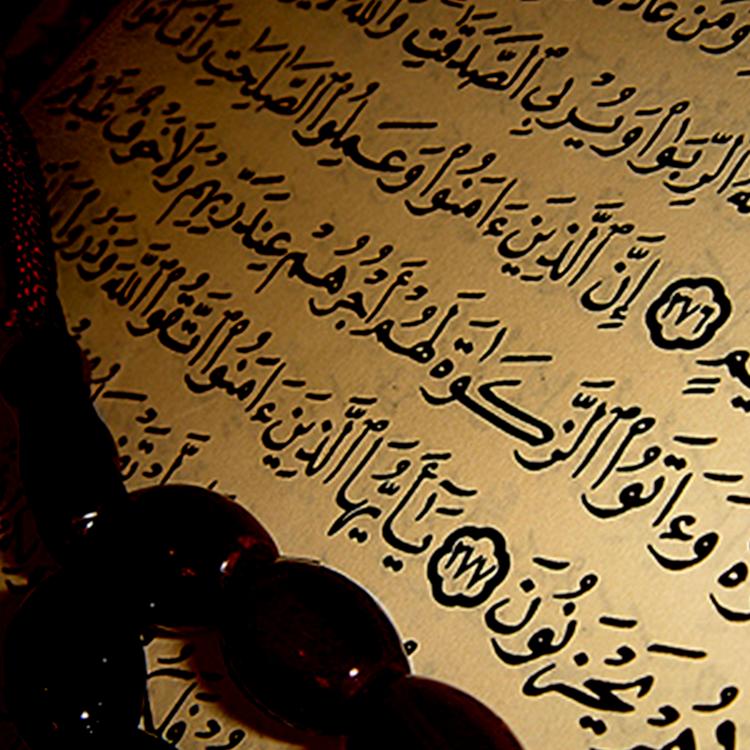 وَمَنْ عَادَ
ٱلرِّبَوٰا۟ وَيُرْبِى ٱلصَّدَقَٰتِ وَٱللَّهُ
ـيمٍ ٢٧٦ إِنَّ ٱلَّذِينَ ءَامَنُوا۟ وَعَمِلُوا۟ ٱلصَّٰلِحَٰتِ وَأَقَامُوا۟
ـوٰةَ وَءَاتَوُا۟ ٱلزَّكَوٰةَ لَهُمْ أَجْرُهُمْ عِندَ رَبِّهِمْ وَلَا خَوْفٌ عَلَيْـ
هُمْ يَحْزَنُونَ ٢٧٧ يَٰٓأَيُّهَا ٱلَّذِينَ ءَامَنُوا۟ ٱتَّقُوا۟ ٱللَّهَ وَذَرُوا۟